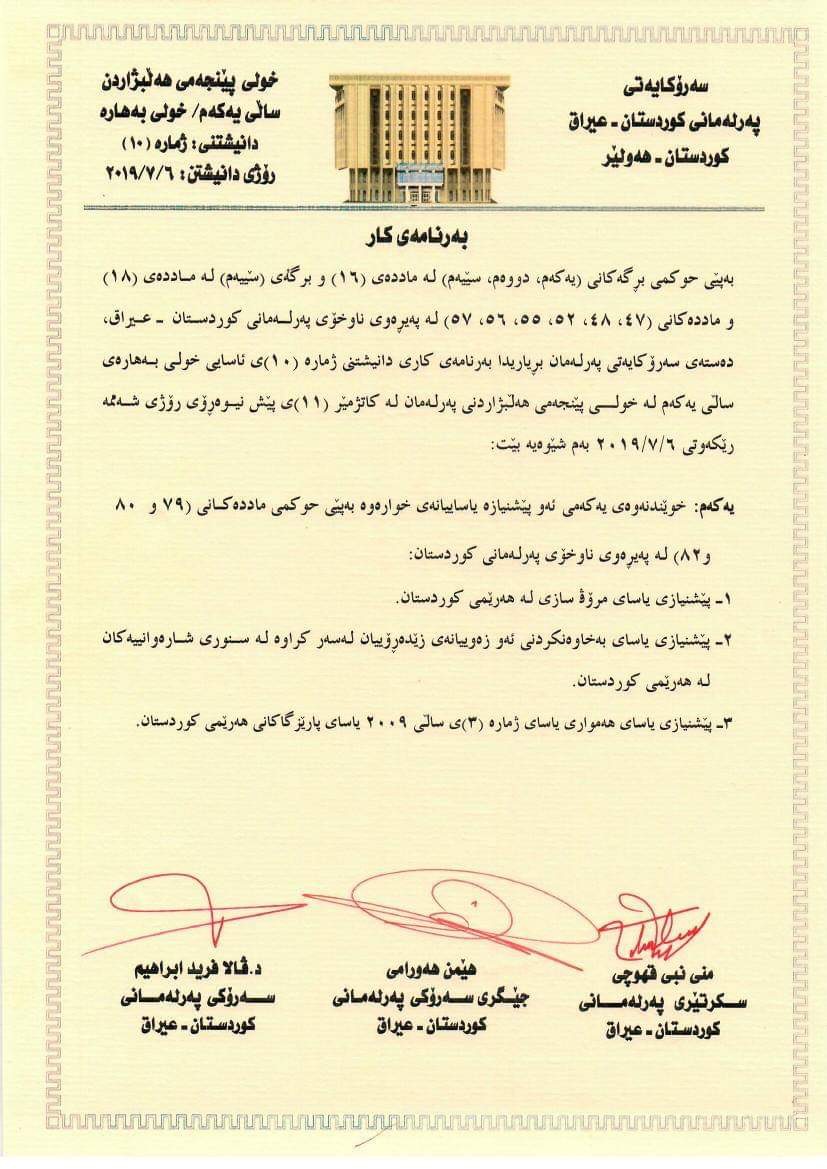 سەرۆکایەتی
پەرلەمانی کوردستان ـ عیراق
کوردستان ـ هەولێر
خولی پێنجەمی هەڵبژاردن
ساڵی یەکەم/ خولی بەهارە
دانیشتنی: ژمارە (١٠)
رۆژی دانیشتن: ٢٠١٩/٧/٦
بەرنامەی کار
بەپێی حوکمی برگەکانی (یەکەم، دووەم، سێیەم) لە ماددەی (١٦) و برگەی (سێیەم) لە ماددەی (١٨)
و ماددەکانی (٤٧، ٤٨، ٥٢، ٥٥، ٥٦، ٥٧) لە پەیرەوی ناوخۆی پەرلەمانی کوردستان ـ عیراق،
دەستەی سەرۆکایەتی پەرلەمان بریاریدا بەرنامەی کاری دانیشتنی ژمارە (١٠)ی ئاسایی خولی بەهارەی
ساڵی یەکەم لە خولی پێنجەمی هەڵبژاردنی پەرلەمان لە کاتژمێر (١١)ی پێش نیوەڕۆی رۆژی شەممە
رێکەوتی ٢٠١٩/٧/٦ بەم شێوەیە بێت:
یەکەم: خوێندنەوەی یەکەمی ئەو پێشنیازە یاساییانەی خوارەوە بەپێی حوکمی ماددەکانی (٧٩ و ٨٠
و٨٢) لە پەیرەوی ناوخۆی پەرلەمانی کوردستان:
١ـ پێشنیازی یاسای مرۆڤ سازی لە هەرێمی کوردستان.
٢ـ پێشنیازی یاسای بەخاوەنکردنی ئەو زەوییانەی زێدەڕۆییان لەسەر کراوە لە سنوری شارەوانییەکان
لە هەرێمی کوردستان.
٣ـ پێشنیازی یاسای هەمواری یاسای ژمارە (٣)ی ساڵی ٢٠٠٩ یاسای پارێزگاکانی هەرێمی کوردستان.
منی نبی قهوچی
سکرتێری پەرلەمانی
کوردستان ـ عیراق
هێمن هەورامی
جێگری سەرۆکی پەرلەمانی
کوردستان ـ عیراق
د.ڤالا فرید ابراهیم
سەرۆکی پەرلەمانی
کوردستان ـ عیراق